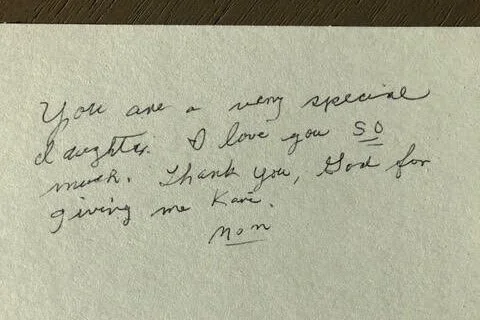 You are a very special
daughter. I love you SO
much. Thank you, God for
giving me Kari.
Mom